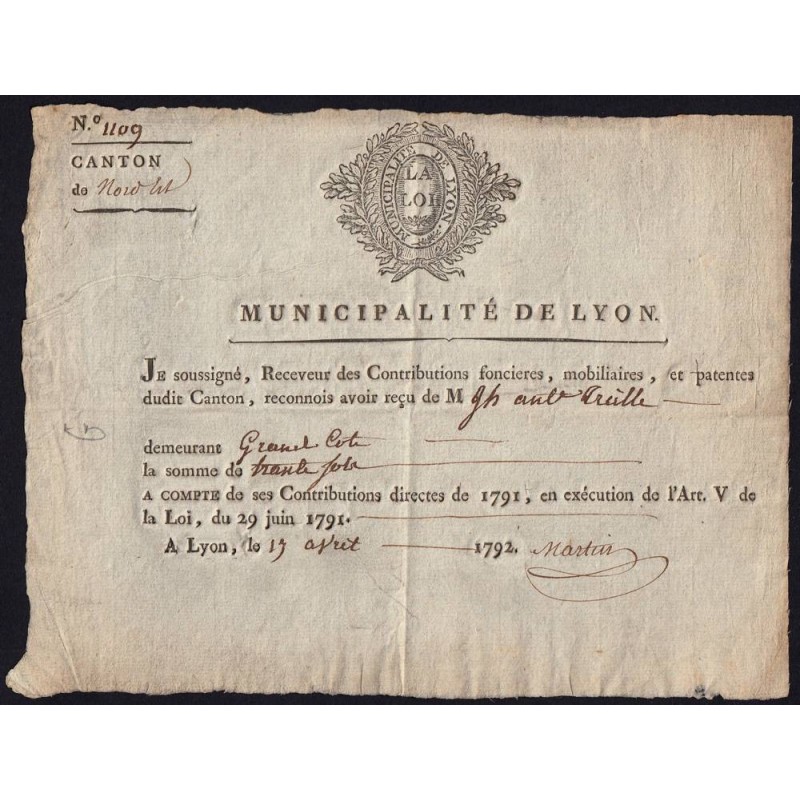 N.º 1109
CANTON
de Nord Est
MUNICIPALITÉ DE LYON
LA
LOI
MUNICIPALITÉ DE LYON.
JE soussigné, Receveur des Contributions foncieres, mobiliaires, et patentes
dudit Canton, reconnois avoir reçu de M
demeurant Grand Cote
la somme de trante sols
A COMPTE de ses Contributions directes de 1791, en exécution de l'Art. V de
la Loi, du 29 juin 1791.
A Lyon, le avril 1792. Martin